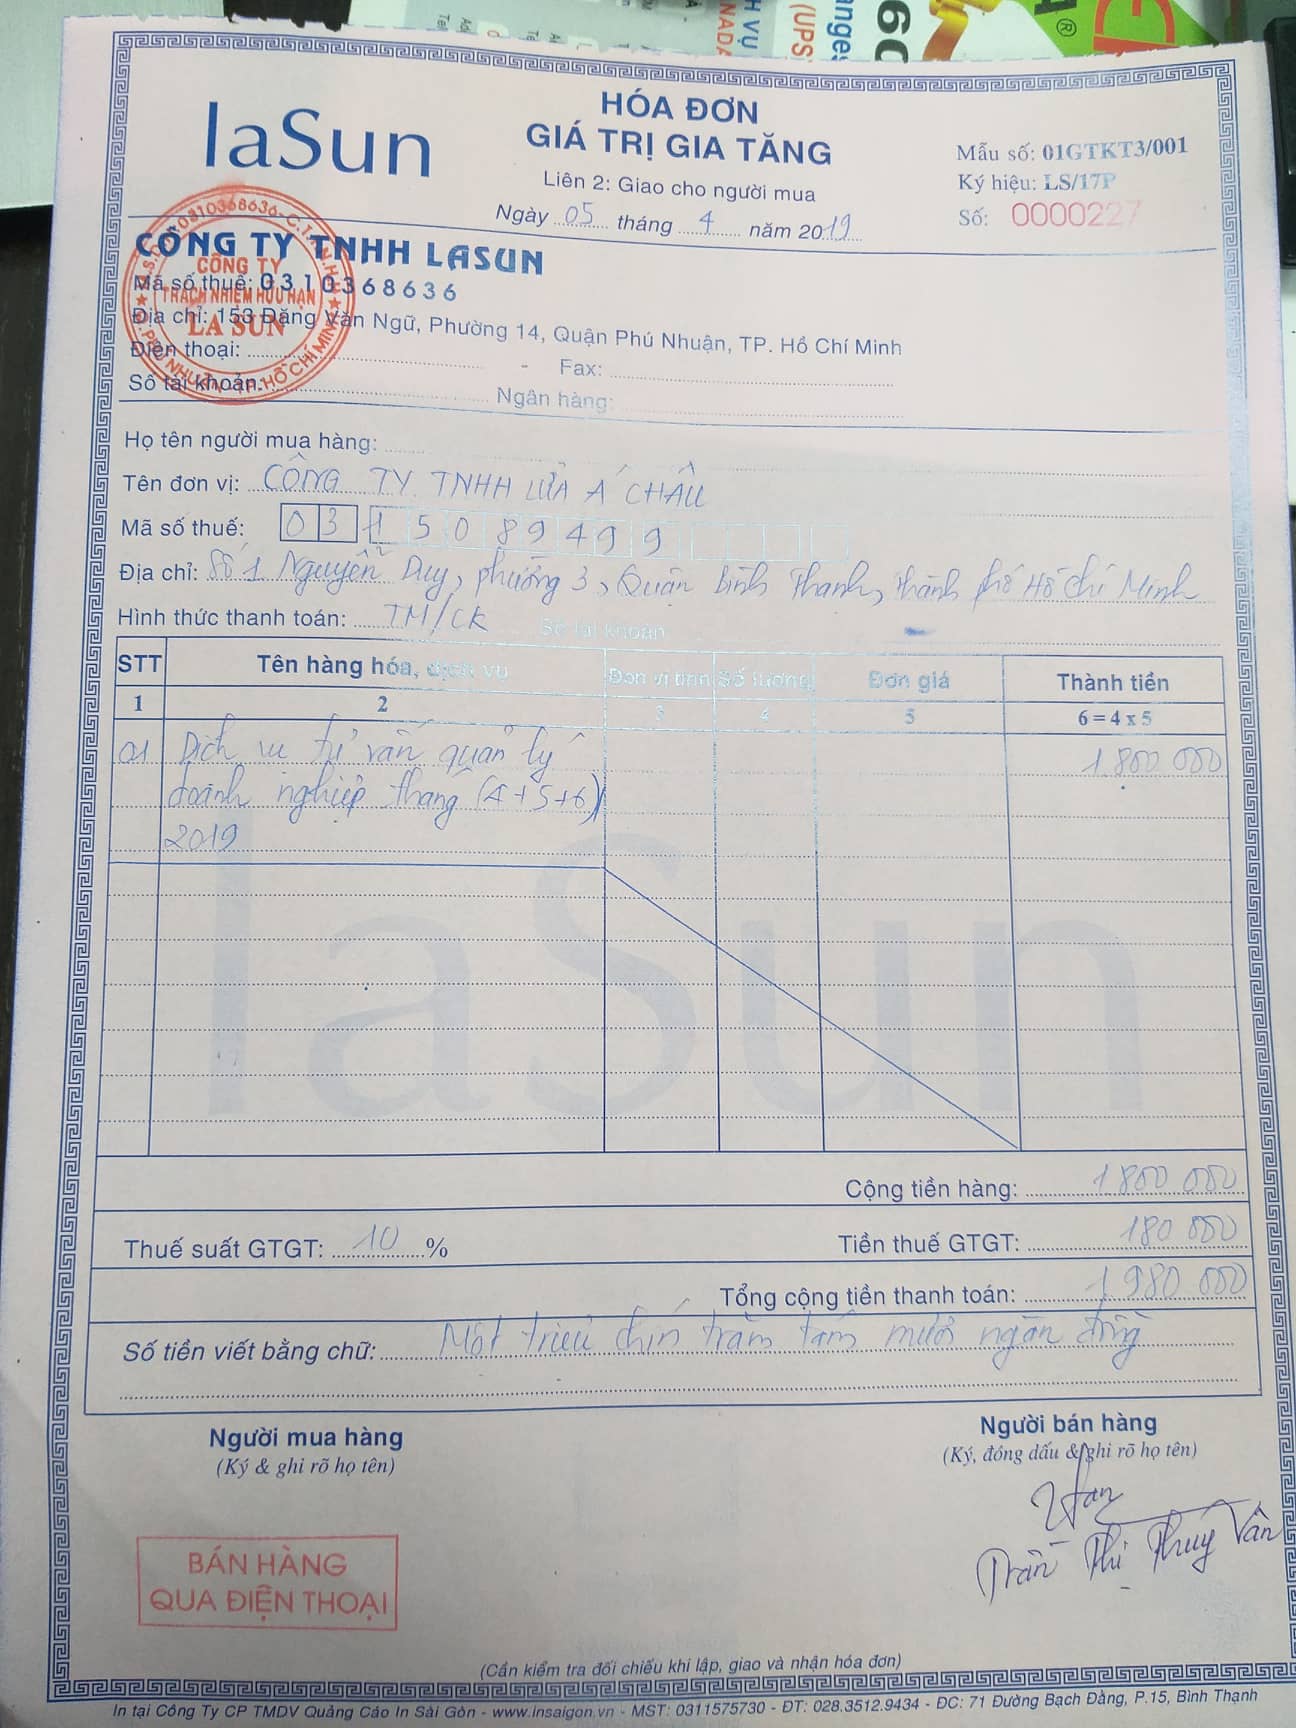 laSun
HÓA ĐƠN
GIÁ TRỊ GIA TĂNG
Liên 2: Giao cho người mua
Ngày 05 tháng 4 năm 2019
Mẫu số: 01GTKT3/001
Ký hiệu: LS/17P
Số: 0000227
CÔNG TY TNHH LASUN
Mã số thuế: 0310368636
Địa chỉ: 153 Đặng Văn Ngữ, Phường 14, Quận Phú Nhuận, TP. Hồ Chí Minh
Điện thoại: - Fax:
Số tài khoản: Ngân hàng:
M.S.D.N: 0310368636 - C.T.T.N.H.H
CÔNG TY
TRÁCH NHIỆM HỮU HẠN
LA SUN
Q. PHÚ NHUẬN - TP. HỒ CHÍ MINH
Họ tên người mua hàng:
Tên đơn vị: CÔNG TY TNHH LỬA Á CHÂU
Mã số thuế: 0315089499
Địa chỉ: Số 1 Nguyễn Duy, phường 3, Quận Bình Thạnh, thành phố Hồ Chí Minh
Hình thức thanh toán: TM/CK Số tài khoản
STT Tên hàng hóa, dịch vụ Đơn vị tính Số lượng Đơn giá Thành tiền
1 2 3 4 5 6 = 4 x 5
01 Dịch vụ tư vấn quản lý 1 800 000
doanh nghiệp tháng (4+5+6)
2019
laSun
Cộng tiền hàng: 1 800 000
Thuế suất GTGT: 10 % Tiền thuế GTGT: 180 000
Tổng cộng tiền thanh toán: 1 980 000
Số tiền viết bằng chữ: Một triệu chín trăm tám mươi ngàn đồng
Người mua hàng
(Ký & ghi rõ họ tên)
Người bán hàng
(Ký, đóng dấu & ghi rõ họ tên)
Trần Thị Thúy Vân
BÁN HÀNG
QUA ĐIỆN THOẠI
(Cần kiểm tra đối chiếu khi lập, giao và nhận hóa đơn)
In tại Công Ty CP TMDV Quảng Cáo In Sài Gòn - www.insaigon.vn - MST: 0311575730 - ĐT: 028.3512.9434 - ĐC: 71 Đường Bạch Đằng, P.15, Bình Thạnh